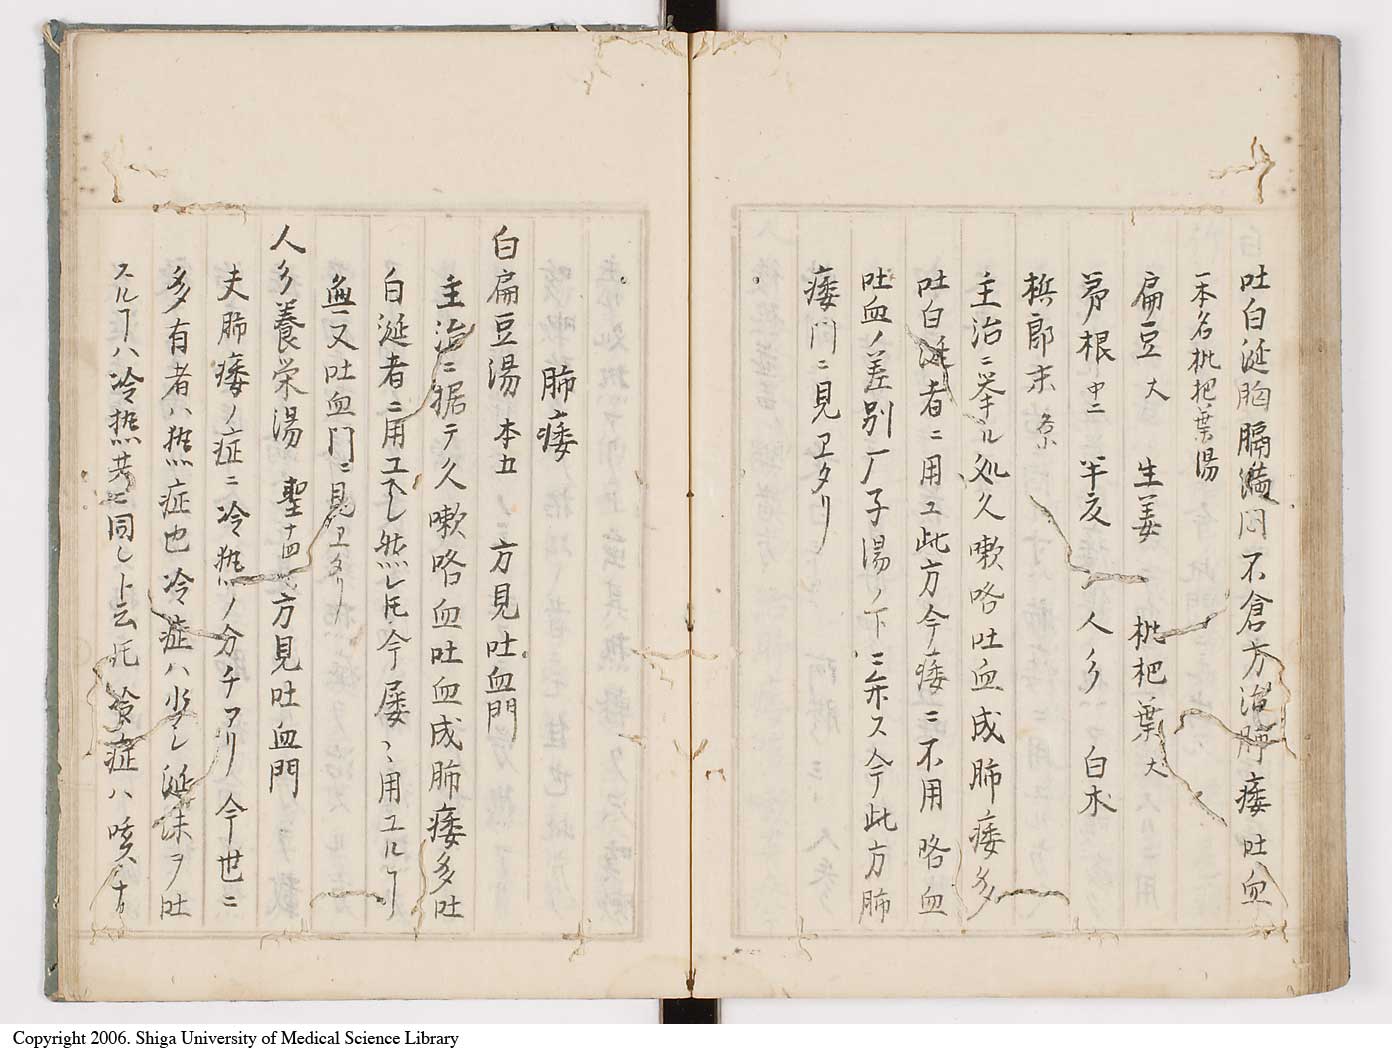 吐白涎胸膈満悶不倉方治肺痿吐血
一本名枇杷葉湯
扁豆大 生姜 枇杷葉大
茅根中二 半夏 人参 白朮
檳榔末
主治ニ挙ル処久嗽咯吐血成肺痿多
吐白涎者ニ用ユ此方今痿ニ不用咯血
吐血ノ差別一厂子湯ノ下ニ弁ス今此方肺
痿門ニ見ヱタリ
肺痿
白扁豆湯 本五ノ三方見吐血門
主治ニ据テ久嗽咯血吐血成肺痿多吐
白涎者ニ用ユヘシ然レ𪜈今屡〻用ユルヿ
無一又吐血門ニ見ヱタリ
人参養栄湯 聖十四 方見吐血門
夫肺痿ノ症ニ冷热ノ分チアリ今世ニ
多有者ハ热症也冷症ハ少シ涎沫ヲ吐
スルヿハ冷热共ニ同シト云𪜈冷症ハ咳
Copyright 2006. Shiga University of Medical Science Library